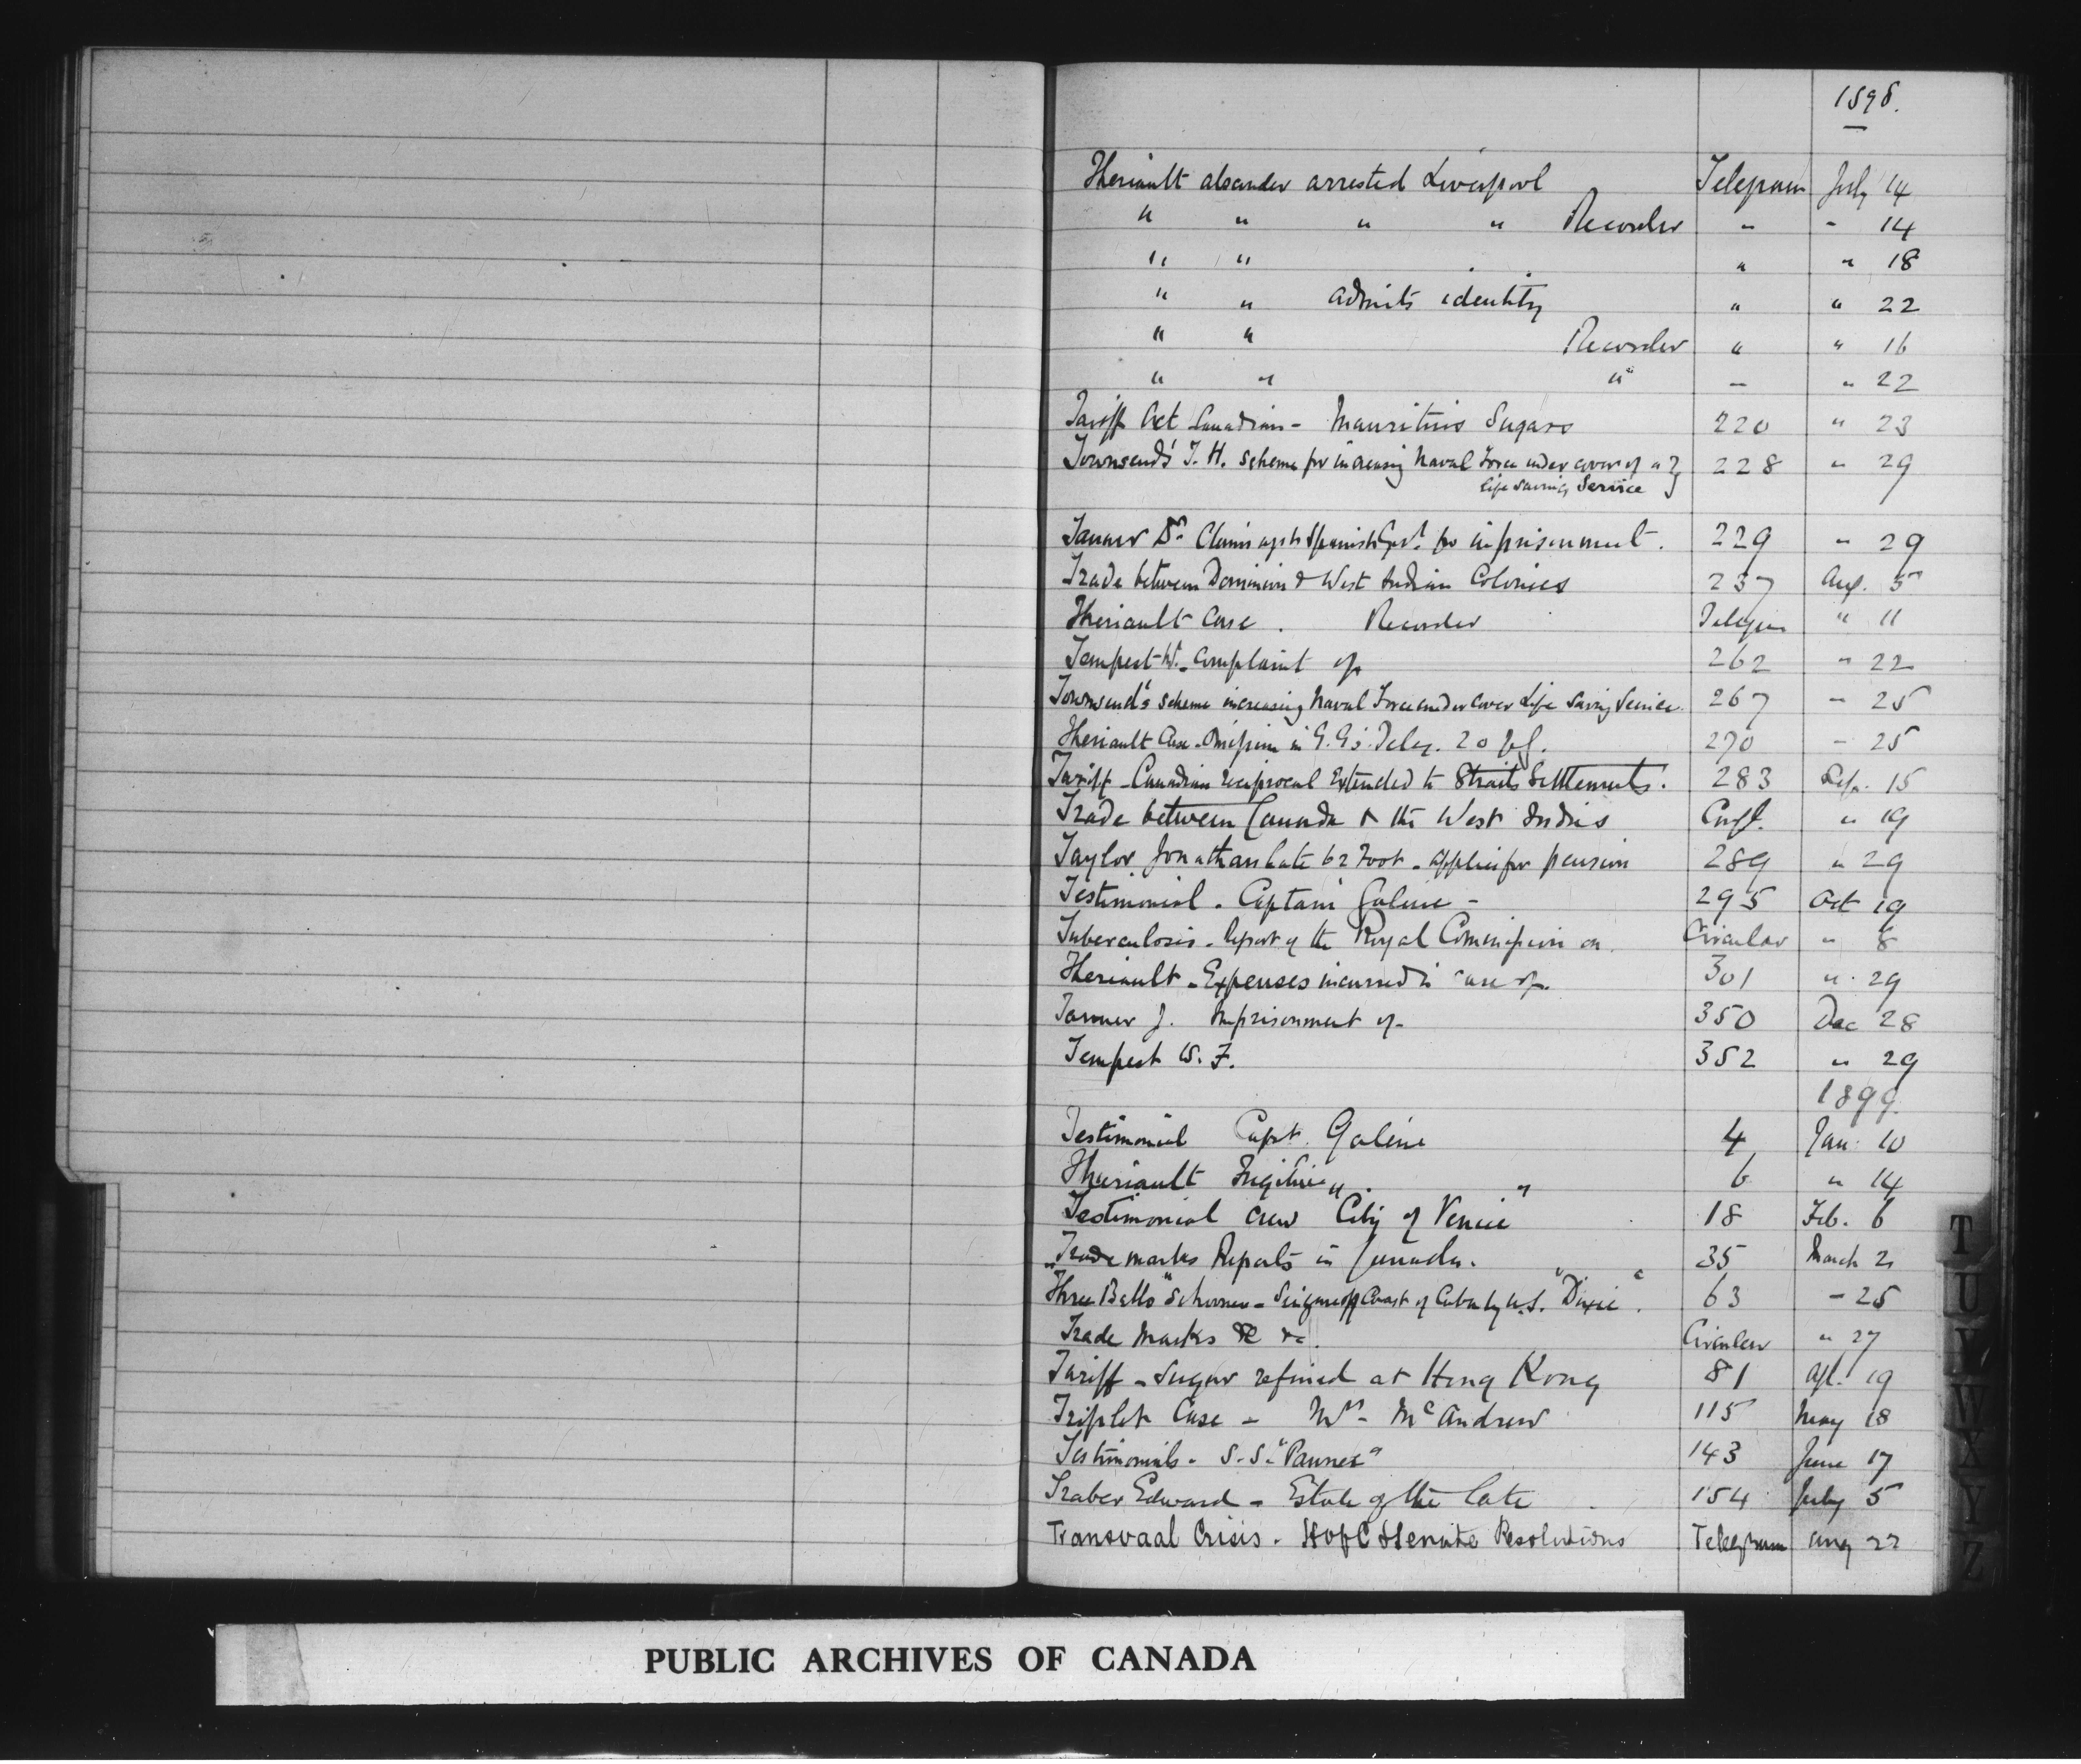 1898.
Theriault alexander arrested Liverpool Telegram July 14
" " " " Recorder " " 14
" " " " 18
" " admits identity " " 22
" " Recorder " " 16
" " " " " 22
Tariff Act Canadian - Mauritius Sugars 220 " 23
Townsend's T. H. scheme for increasing Naval Force under cover of a 228 " 29
life saving Service
Tanner Dr Claim agst Spanish Govt. for imprisonment. 229 " 29
Trade between Dominion & West Indian Colonies 237 Aug. 5
Theriault Case. Recorder Telegram " 11
Tempest W. complaint of 262 " 22
Townsend's scheme increasing Naval Force under cover Life Saving Service 267 " 25
Theriault Case. Omission in G.G's. Teleg. 20 270 " 25
Tariff - Canadian reciprocal Extended to Straits Settlements. 283 Sep. 15
Trade between Canada & the West Indies Confl. " 19
Taylor Jonathan late 62 Foot - applies for pension 289 " 29
Testimonial - Captain Galine - 295 Oct 19
Tuberculosis - Report of the Royal Commission on Circular " 8
Theriault - Expenses incurred in case of. 301 " 29
Tanner J. Imprisonment of - 350 Dec 28
Tempest W. F. 352 " 29
1899.
Testimonial Capt. Galine 4 Jan. 10
Theriault Fugitive. 6 " 14
Testimonial crew "City of Venice" 18 Feb. 6
Trade marks Reports in Canada. 35 March 2
"Three Bells" Schooner - Seizure off Coast of Cuba by U.S. "Dixie". 63 - 25
Trade Marks &c &c. Circular " 27
Tariff - Sugar refined at Hong Kong 81 Apl. 19
Triplet Case - Mrs - McAndrew 115 May 18
Testimonials - S.S. 143 June 17
Traber Edward - Estate of the late 154 July 5
Transvaal Crisis - H of C & Senate Resolutions Telegram Aug 22
T
U
V
W
X
Y
Z
PUBLIC ARCHIVES OF CANADA